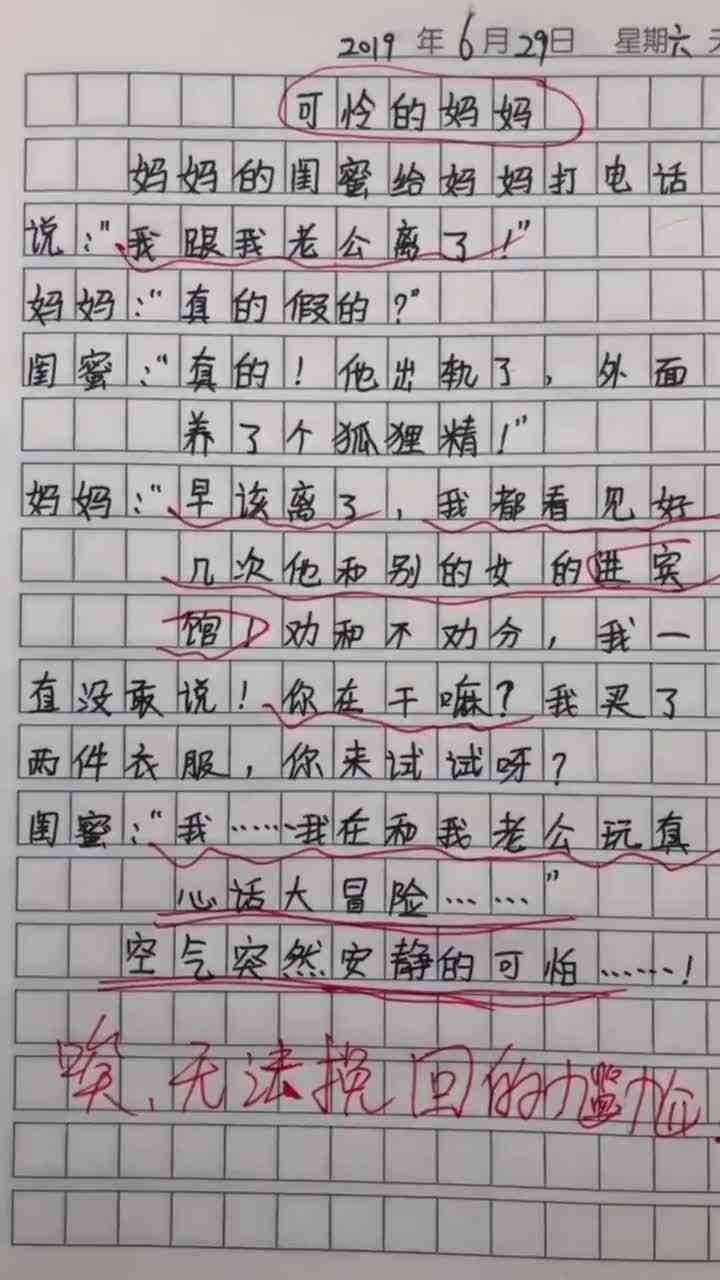 2019 年 6 月 29 日 星期六 天
可怜的妈妈
妈妈的闺蜜给妈妈打电话
说:"我跟我老公离了!"
妈妈:"真的假的?"
闺蜜:"真的!他出轨了,外面
养了个狐狸精!"
妈妈:"早该离了,我都看见好
几次他和别的女的进宾
馆!劝和不劝分,我一
直没敢说!你在干嘛?我买了
两件衣服,你来试试呀?
闺蜜:"我……我在和我老公玩真
心话大冒险……"
空气突然安静的可怕……!
唉、无法挽回的尴尬.